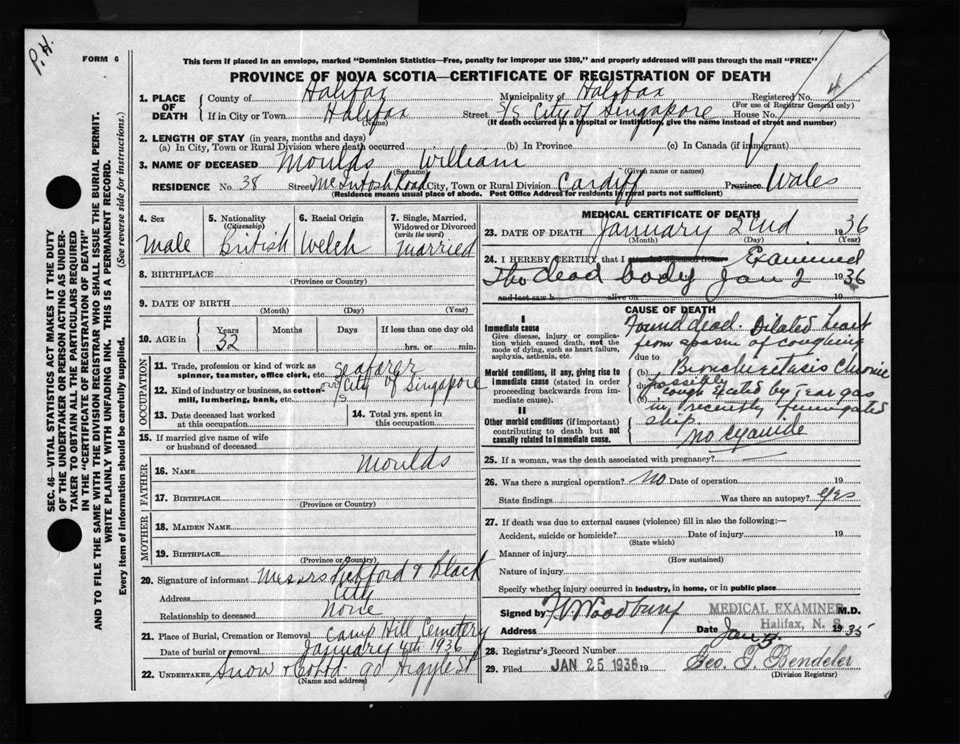 P.H.
FORM 6
This form if placed in an envelope, marked "Dominion Statistics—Free, penalty for improper use $300," and properly addressed will pass through the mail "FREE"
PROVINCE OF NOVA SCOTIA—CERTIFICATE OF REGISTRATION OF DEATH
SEC. 46—VITAL STATISTICS ACT MAKES IT THE DUTY
OF THE UNDERTAKER OR PERSON ACTING AS UNDER-
TAKER TO OBTAIN ALL THE PARTICULARS REQUIRED
IN THE "CERTIFICATE REGISTRATION OF DEATH"
AND TO FILE THE SAME WITH THE DIVISION REGISTRAR WHO SHALL ISSUE THE BURIAL PERMIT.
WRITE PLAINLY WITH UNFADING INK. THIS IS A PERMANENT RECORD.
Every item of information should be carefully supplied. (See reverse side for instructions.)
1. PLACE OF DEATH
County of Halifax Municipality of Halifax Registered No. 4
(For use of Registrar General only)
If in City or Town Halifax Street S/S City of Singapore House No.
(Name) (If death occurred in a hospital or institution, give the name instead of street and number)
2. LENGTH OF STAY (in years, months and days)
(a) In City, Town or Rural Division where death occurred (b) In Province (c) In Canada (if immigrant)
3. NAME OF DECEASED Moulds William
(Surname) (Given name or names)
RESIDENCE No. 38 Street McIntosh Road City, Town or Rural Division Cardiff Province Wales
(Residence means usual place of abode. Post Office Address for residents in rural parts not sufficient)
4. Sex
Male
5. Nationality
(Citizenship)
British
6. Racial Origin
Welch
7. Single, Married,
Widowed or Divorced
(write the word)
Married
8. BIRTHPLACE
(Province or Country)
9. DATE OF BIRTH
(Month) (Day) (Year)
10. AGE in
Years Months Days If less than one day old
32 hrs. or min.
OCCUPATION
11. Trade, profession or kind of work as
spinner, teamster, office clerk, etc. Seafarer
12. Kind of industry or business, as cotton-
mill, lumbering, bank, etc. S/S City of Singapore
13. Date deceased last worked
at this occupation
14. Total yrs. spent in
this occupation
15. If married give name of wife
or husband of deceased
FATHER
16. NAME Moulds
17. BIRTHPLACE
(Province or Country)
MOTHER
18. MAIDEN NAME
19. BIRTHPLACE
(Province or Country)
20. Signature of informant Messrs Pickford & Black
Address City
Relationship to deceased None
21. Place of Burial, Cremation or Removal Camp Hill Cemetery
Date of burial or removal January 4th 1936
22. UNDERTAKER Snow & Co Ltd 90 Argyle St
(Name and address)
MEDICAL CERTIFICATE OF DEATH
23. DATE OF DEATH January 2nd 1936
(Month) (Day) (Year)
24. I HEREBY CERTIFY that I attended deceased from Examined
The dead body Jan 2 1936
and last saw h alive on 19
CAUSE OF DEATH
I
Immediate cause
Give disease, injury or complica-
tion which caused death, not the
mode of dying, such as heart failure,
asphyxia, asthenia, etc.
Morbid conditions, if any, giving rise to
immediate cause (stated in order
proceeding backwards from im-
mediate cause).
II
Other morbid conditions (if important)
contributing to death but not
causally related to immediate cause.
Found dead. Dilated heart
from spasm of coughing
due to
(b) Bronchiectasis Chronic
possibly
cough excited by tear gas
in recently fumigated
ship.
no cyanide
25. If a woman, was the death associated with pregnancy?
26. Was there a surgical operation? No Date of operation 19
State findings Was there an autopsy? Yes
27. If death was due to external causes (violence) fill in also the following:—
Accident, suicide or homicide? Date of injury 19
(State which)
Manner of injury
(How sustained)
Nature of injury
Specify whether injury occurred in industry, in home, or in public place
Signed by F V Woodbury MEDICAL EXAMINER M.D.
Halifax, N. S.
Address Date Jan 3. 1935
28. Registrar's Record Number
29. Filed JAN 25 1936 19 Geo. J. Bendeler
(Division Registrar)